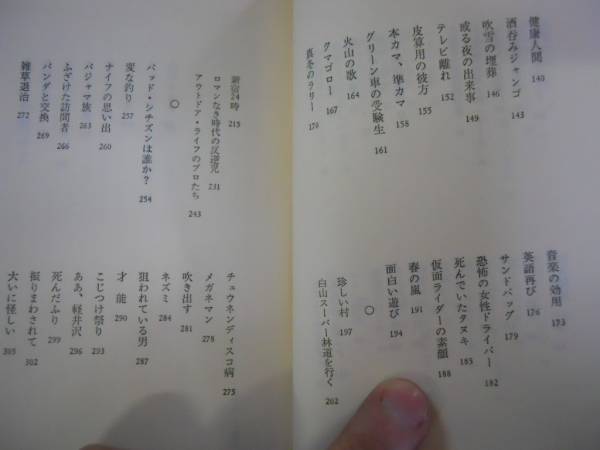 健康人間 140
酒呑みジャンゴ 143
吹雪の埋葬 146
或る夜の出来事 149
テレビ離れ 152
皮算用の彼方 155
本カマ、準カマ 158
グリーン車の受験生 161
火山の歌 164
クマゴロー 167
真冬のラリー 170
音楽の効用 173
英語再び 176
サンドバッグ 179
恐怖の女性ドライバー 182
死んでいたタヌキ 185
仮面ライダーの素顔 188
春の嵐 191
面白い遊び 194
○
珍しい村 197
白山スーパー林道を行く 202
新宿24時 215
ロマンなき時代の反逆児 231
アウトドア・ライフのプロたち 243
○
バッド・シチズンは誰か? 254
変な釣り 257
ナイフの思い出 260
パジャマ族 263
ふざけた訪問者 266
パンダと交換 269
雑草退治 272
チュウネンディスコ病 275
メガネマン 278
吹き出す 281
ネズミ 284
狙われている男 287
才能 290
こじつけ祭り 293
ああ、軽井沢 296
死んだふり 299
振りまわされて 302
大いに怪しい 305